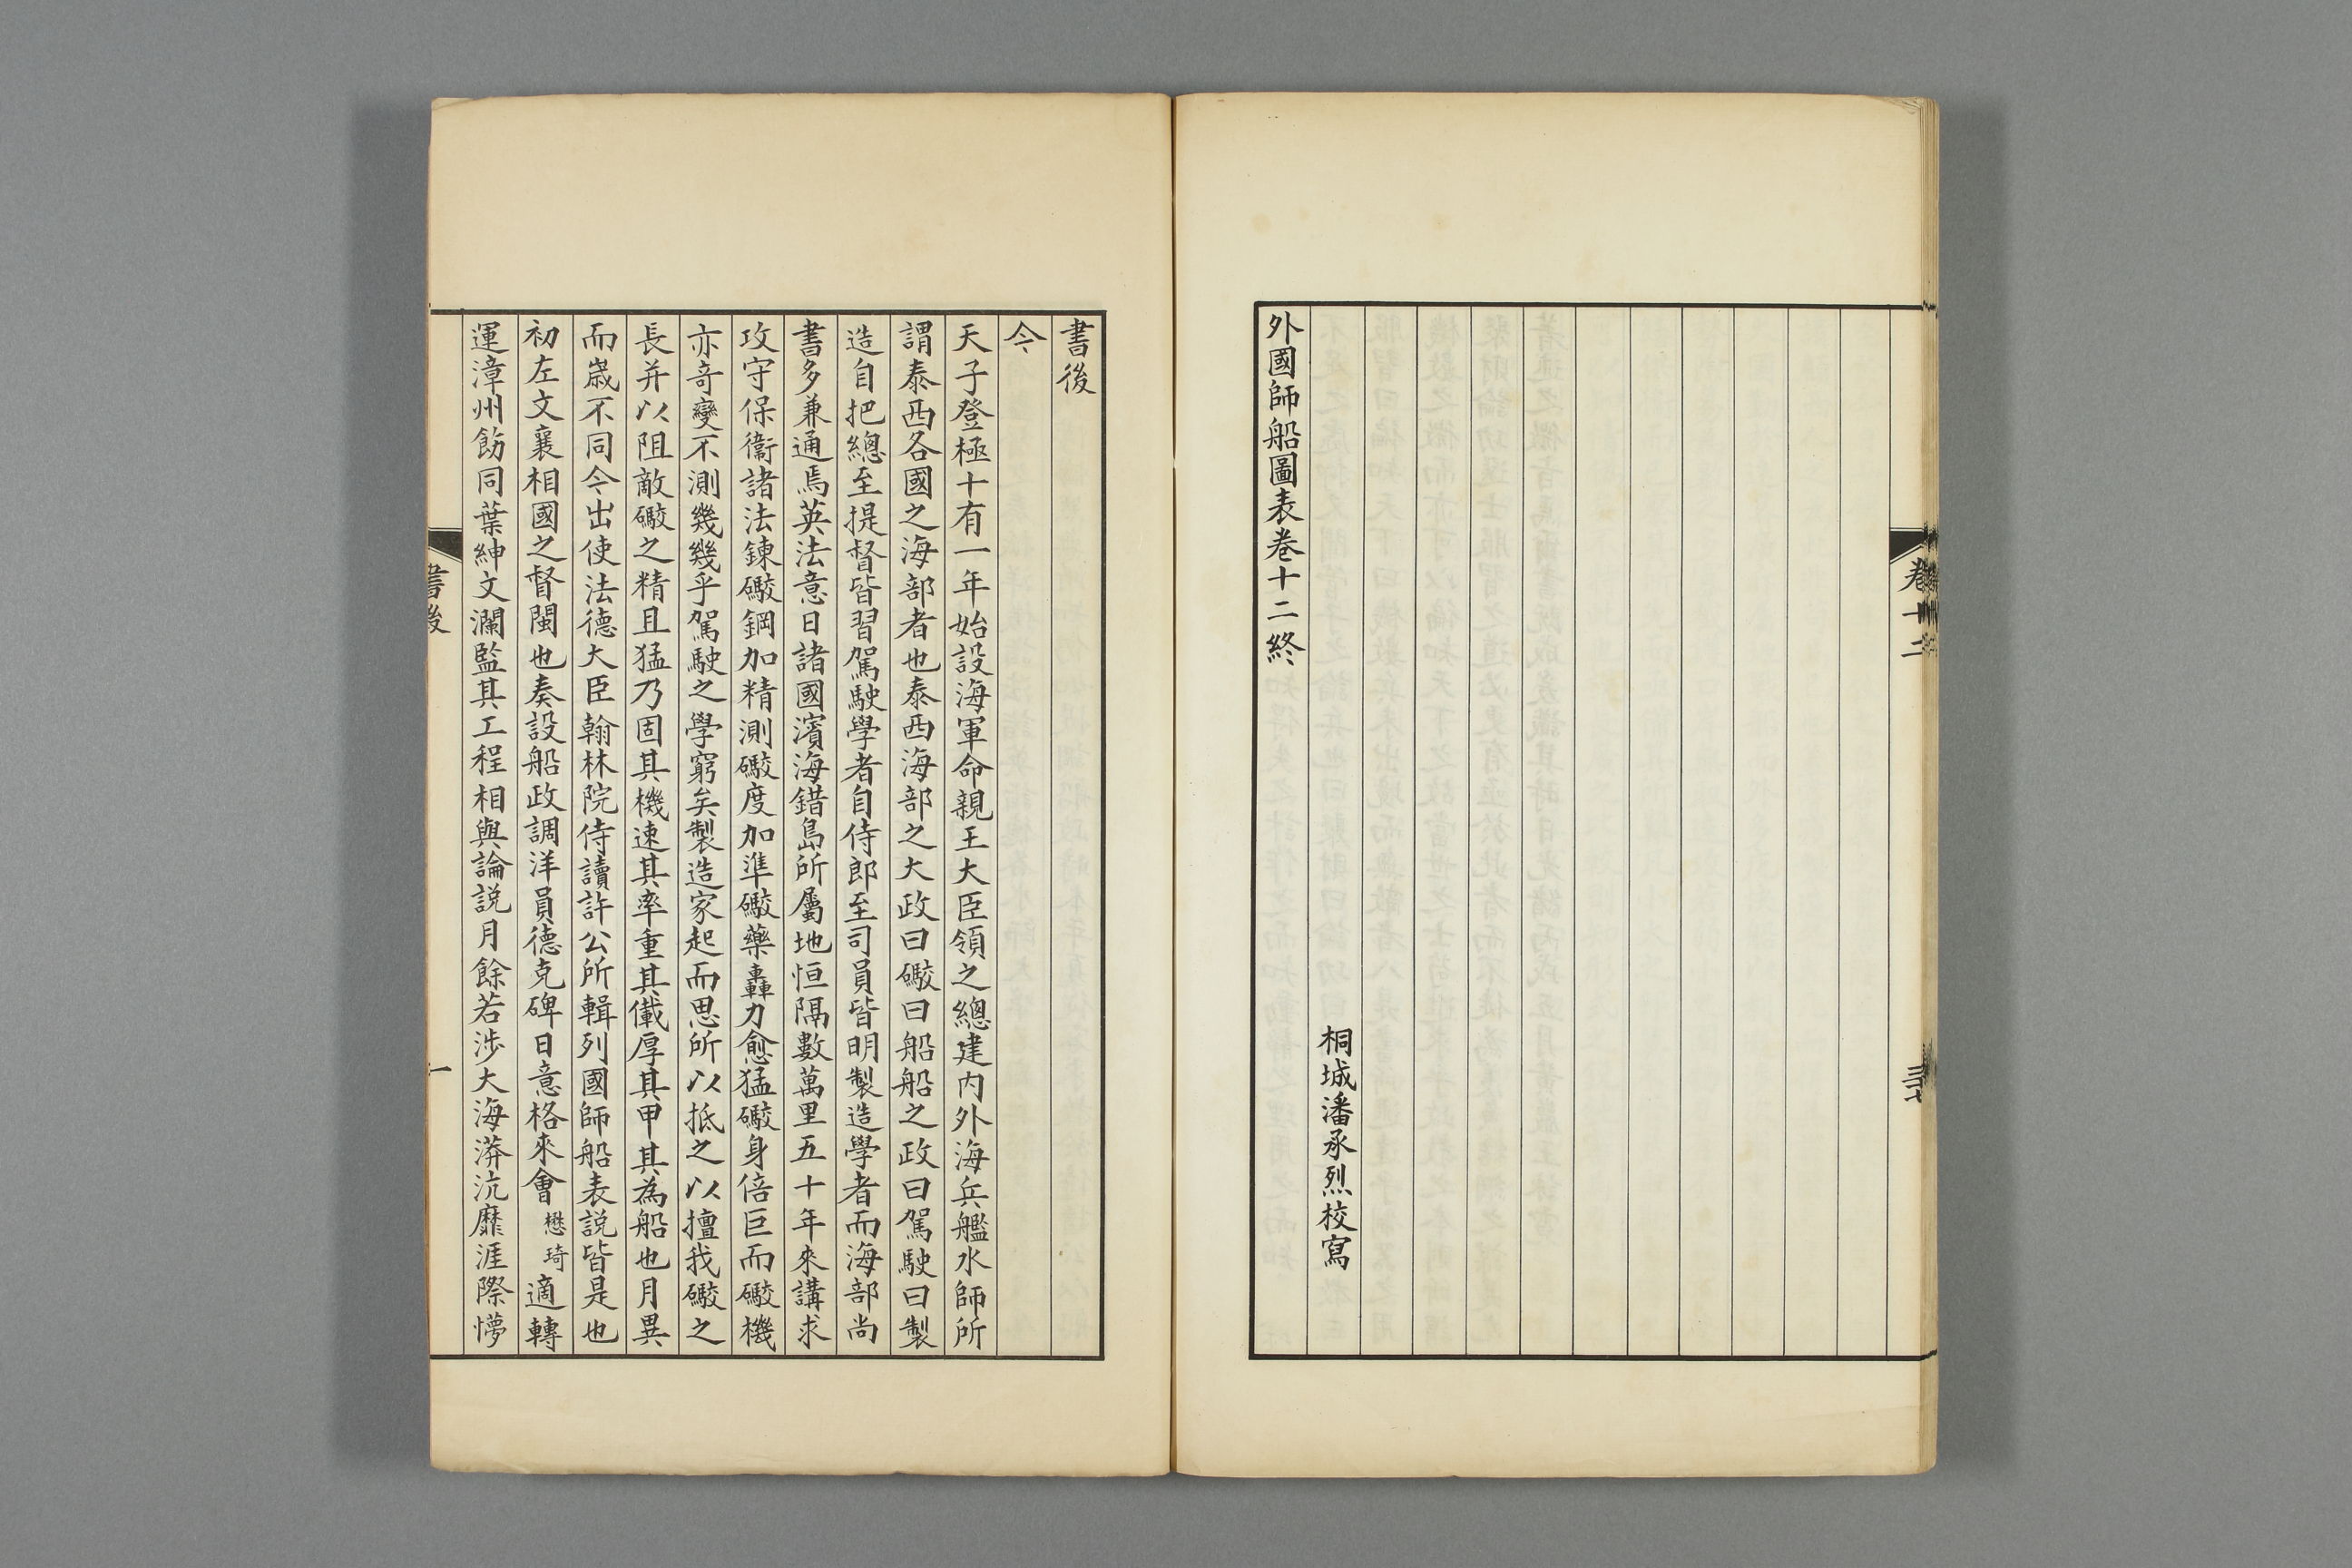 卷十二
三十七
桐城潘承烈校寫
外國師船圖表卷十二終
書後
今
天子登極十有一年始設海軍命親王大臣領之總建内外海兵艦水師所
謂泰西各國之海部者也泰西海部之大政曰礮曰船船之政曰駕駛曰製
造自把總至提督皆習駕駛學者自侍郎至司員皆明製造學者而海部尚
書多兼通焉英法意日諸國濱海錯島所屬地恒隔數萬里五十年來講求
攻守保衞諸法鍊礮鋼加精測礮度加準礮藥轟力愈猛礮身倍巨而礮機
亦奇變不測幾幾乎駕駛之學窮矣製造家起而思所以抵之以擅我礮之
長并以阻敵礮之精且猛乃固其機速其率重其儎厚其甲其為船也月異
而歲不同今出使法德大臣翰林院侍讀許公所輯列國師船表説皆是也
初左文襄相國之督閩也奏設船政調洋員德克碑日意格來會懋琦適轉
運漳州餉同葉紳文瀾監其工程相與論説月餘若涉大海漭沆靡涯際懜
書後
一